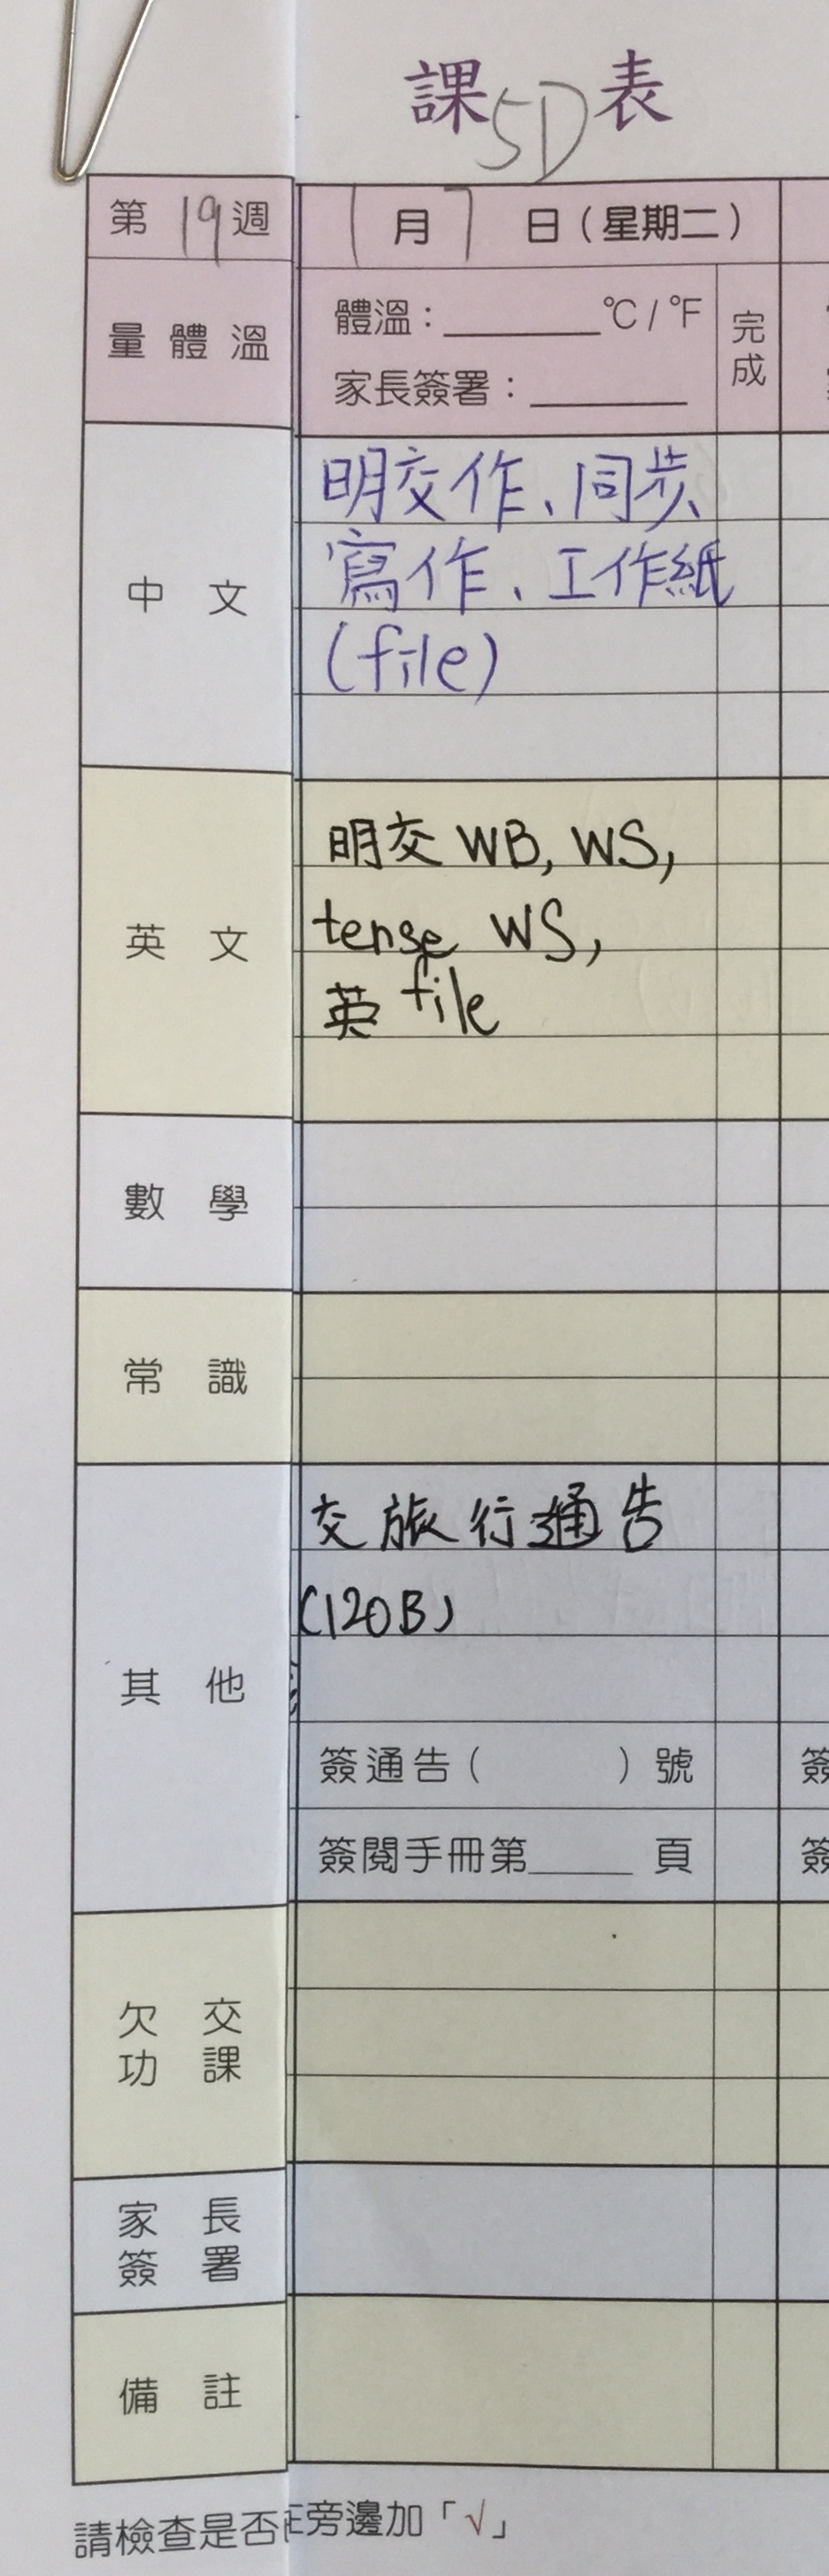 課 5D 表
第 19 週
1 月 7 日 (星期二)
量體溫
體溫：______°C / °F
家長簽署：______
完成
中文
明交作、同步
寫作、工作紙
(file)
英文
明交 WB, WS,
tense WS,
英 file
數學
常識
其他
交旅行通告
(120B)
簽通告 ( ) 號
簽閱手冊第____ 頁
簽
簽
欠交
功課
家長
簽署
備註
請檢查是否
旁邊加「√」